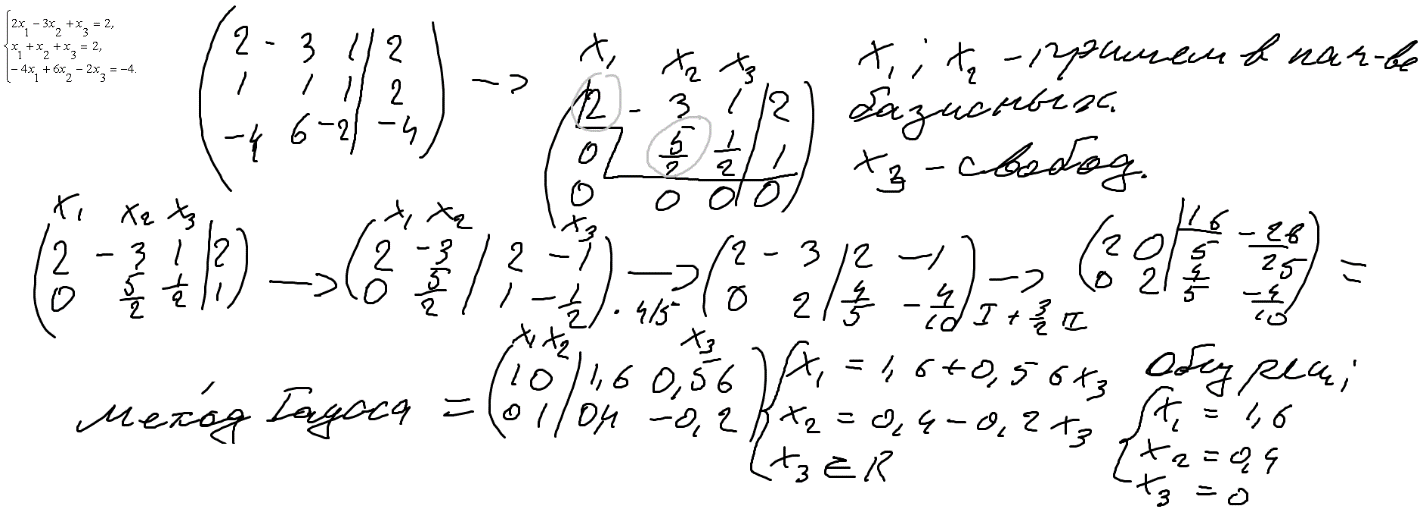 2x₁ − 3x₂ + x₃ = 2,
x₁ + x₂ + x₃ = 2,
− 4x₁ + 6x₂ − 2x₃ = −4.
2 − 3 1 | 2
1 1 1 | 2
−4 6 −2 | −4
→
x₁ x₂ x₃
2 − 3 1 | 2
0 5/2 1/2 | 1
0 0 0 | 0
x₁ ; x₂ – примем в кач-ве
базисных.
x₃ – свобод.
x₁ x₂ x₃
2 − 3 1 | 2
0 5/2 1/2 | 1
→
x₁ x₂ x₃
2 −3 | 2 −1
0 5/2 | 1 −1/2
· 4/5 →
2 − 3 | 2 −1
0 2 | 4/5 −4/10
I + 3/2 II →
2 0 | 16/5 −28/25
0 2 | 4/5 −4/10
=
метод Гаусса =
x₁ x₂ x₃
1 0 | 1,6 0,56
0 1 | 0,4 −0,2
x₁ = 1,6+0,56x₃
x₂ = 0,4−0,2x₃
x₃ ∈ R
Общ реш;
x₁ = 1,6
x₂ = 0,4
x₃ = 0